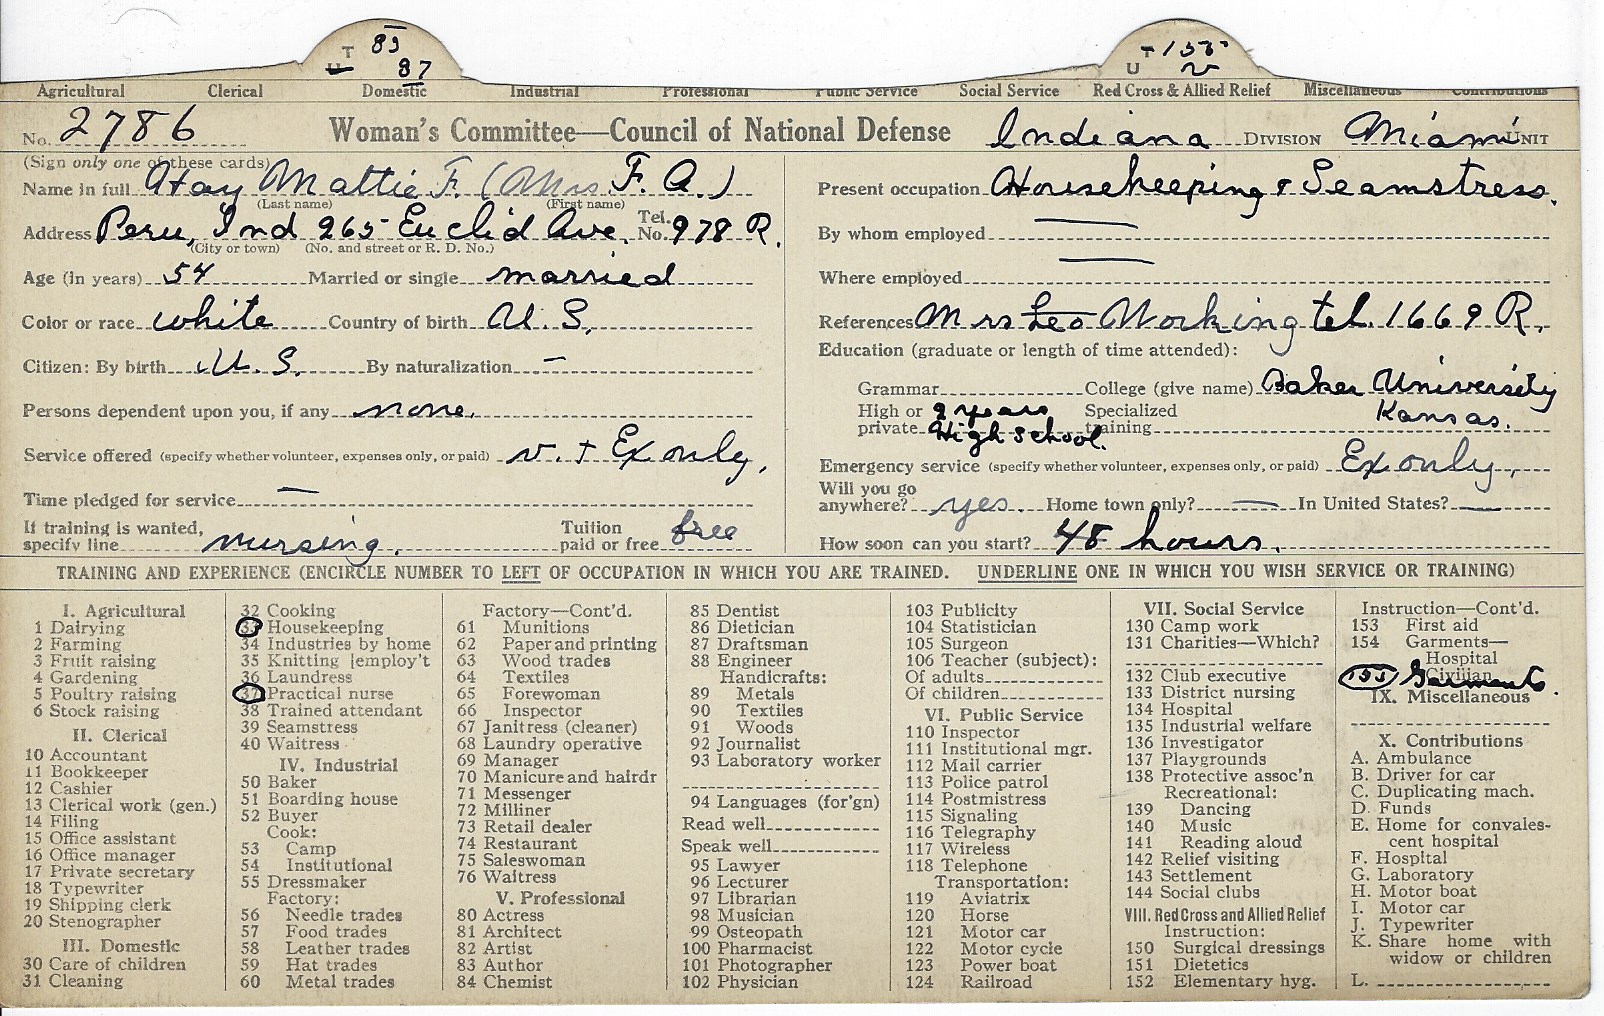 T 33
U 37
T 155
U v
Agricultural Clerical Domestic Industrial Professional Public Service Social Service Red Cross & Allied Relief Miscellaneous Contributions
No. 2786 Woman's Committee—Council of National Defense Indiana DIVISION Miami UNIT
(Sign only one of these cards)
Name in full Hay Mattie F. (Mrs F. A.)
(Last name) (First name)
Address Peru, Ind 265 Euclid Ave. Tel. No. 978 R.
(City or town) (No. and street or R. D. No.)
Age (in years) 54 Married or single married
Color or race white Country of birth U. S.
Citizen: By birth U. S. By naturalization –
Persons dependent upon you, if any none.
Service offered (specify whether volunteer, expenses only, or paid) v. + Ex only.
Time pledged for service —
If training is wanted, specify line nursing. Tuition paid or free free
Present occupation Housekeeping & Seamstress.
By whom employed —
Where employed —
References Mrs Leo Working tel. 1669 R.
Education (graduate or length of time attended):
Grammar College (give name) Baker University
Kansas.
High or private 2 years High school. Specialized training
Emergency service (specify whether volunteer, expenses only, or paid) Ex only.
Will you go anywhere? yes. Home town only? — In United States? —
How soon can you start? 48 hours.
TRAINING AND EXPERIENCE (ENCIRCLE NUMBER TO LEFT OF OCCUPATION IN WHICH YOU ARE TRAINED. UNDERLINE ONE IN WHICH YOU WISH SERVICE OR TRAINING)
I. Agricultural
1 Dairying
2 Farming
3 Fruit raising
4 Gardening
5 Poultry raising
6 Stock raising
II. Clerical
10 Accountant
11 Bookkeeper
12 Cashier
13 Clerical work (gen.)
14 Filing
15 Office assistant
16 Office manager
17 Private secretary
18 Typewriter
19 Shipping clerk
20 Stenographer
III. Domestic
30 Care of children
31 Cleaning
32 Cooking
33 Housekeeping
34 Industries by home
35 Knitting [employ't
36 Laundress
37 Practical nurse
38 Trained attendant
39 Seamstress
40 Waitress
IV. Industrial
50 Baker
51 Boarding house
52 Buyer
Cook:
53 Camp
54 Institutional
55 Dressmaker
Factory:
56 Needle trades
57 Food trades
58 Leather trades
59 Hat trades
60 Metal trades
Factory—Cont'd.
61 Munitions
62 Paper and printing
63 Wood trades
64 Textiles
65 Forewoman
66 Inspector
67 Janitress (cleaner)
68 Laundry operative
69 Manager
70 Manicure and hairdr
71 Messenger
72 Milliner
73 Retail dealer
74 Restaurant
75 Saleswoman
76 Waitress
V. Professional
80 Actress
81 Architect
82 Artist
83 Author
84 Chemist
85 Dentist
86 Dietician
87 Draftsman
88 Engineer
Handicrafts:
89 Metals
90 Textiles
91 Woods
92 Journalist
93 Laboratory worker
94 Languages (for'gn)
Read well
Speak well
95 Lawyer
96 Lecturer
97 Librarian
98 Musician
99 Osteopath
100 Pharmacist
101 Photographer
102 Physician
103 Publicity
104 Statistician
105 Surgeon
106 Teacher (subject):
Of adults
Of children
VI. Public Service
110 Inspector
111 Institutional mgr.
112 Mail carrier
113 Police patrol
114 Postmistress
115 Signaling
116 Telegraphy
117 Wireless
118 Telephone
Transportation:
119 Aviatrix
120 Horse
121 Motor car
122 Motor cycle
123 Power boat
124 Railroad
VII. Social Service
130 Camp work
131 Charities—Which?
132 Club executive
133 District nursing
134 Hospital
135 Industrial welfare
136 Investigator
137 Playgrounds
138 Protective assoc'n
Recreational:
139 Dancing
140 Music
141 Reading aloud
142 Relief visiting
143 Settlement
144 Social clubs
VIII. Red Cross and Allied Relief
Instruction:
150 Surgical dressings
151 Dietetics
152 Elementary hyg.
Instruction—Cont'd.
153 First aid
154 Garments—
Hospital
Civilian
155 Garments.
IX. Miscellaneous
X. Contributions
A. Ambulance
B. Driver for car
C. Duplicating mach.
D. Funds
E. Home for convales-
cent hospital
F. Hospital
G. Laboratory
H. Motor boat
I. Motor car
J. Typewriter
K. Share home with
widow or children
L.